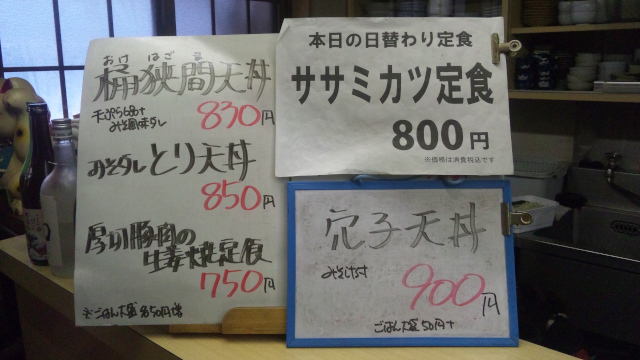 おけはざま
桶狭間天丼
天ぷら6品+
みそ風味タレ
830円
みそダレとり天丼
850円
厚切豚肉の
生姜焼定食
750円
※ごはん大盛 各50円増
本日の日替わり定食
ササミカツ定食
800円
※価格は消費税込です
穴子天丼
みそ汁付
900円
ごはん大盛 50円+